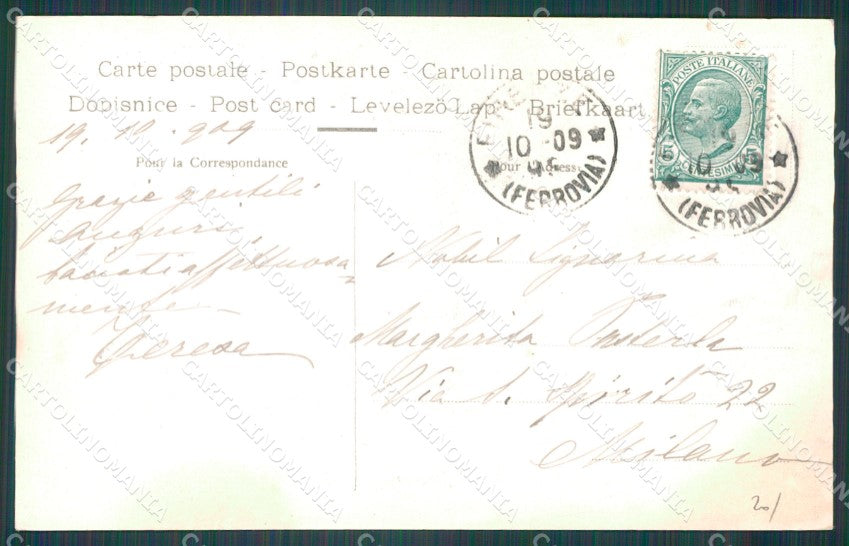 Carte postale - Postkarte - Cartolina postale
Dopisnice - Post card - Levelező Lap - Briefkaart
19. 10. 909
Pour la Correspondance
Pour l'Adresse
POSTE ITALIANE
5 CENTESIMI 5
19
10 -09
(FERROVIA)
10 -09
(FERROVIA)
Grazie gentili
auguri,
salutiaffettuosa=
mente
Teresa
Nobil Signorina
Margherita
Via S. Spirito 22
Milano
20/
CARTOLINOMANIA